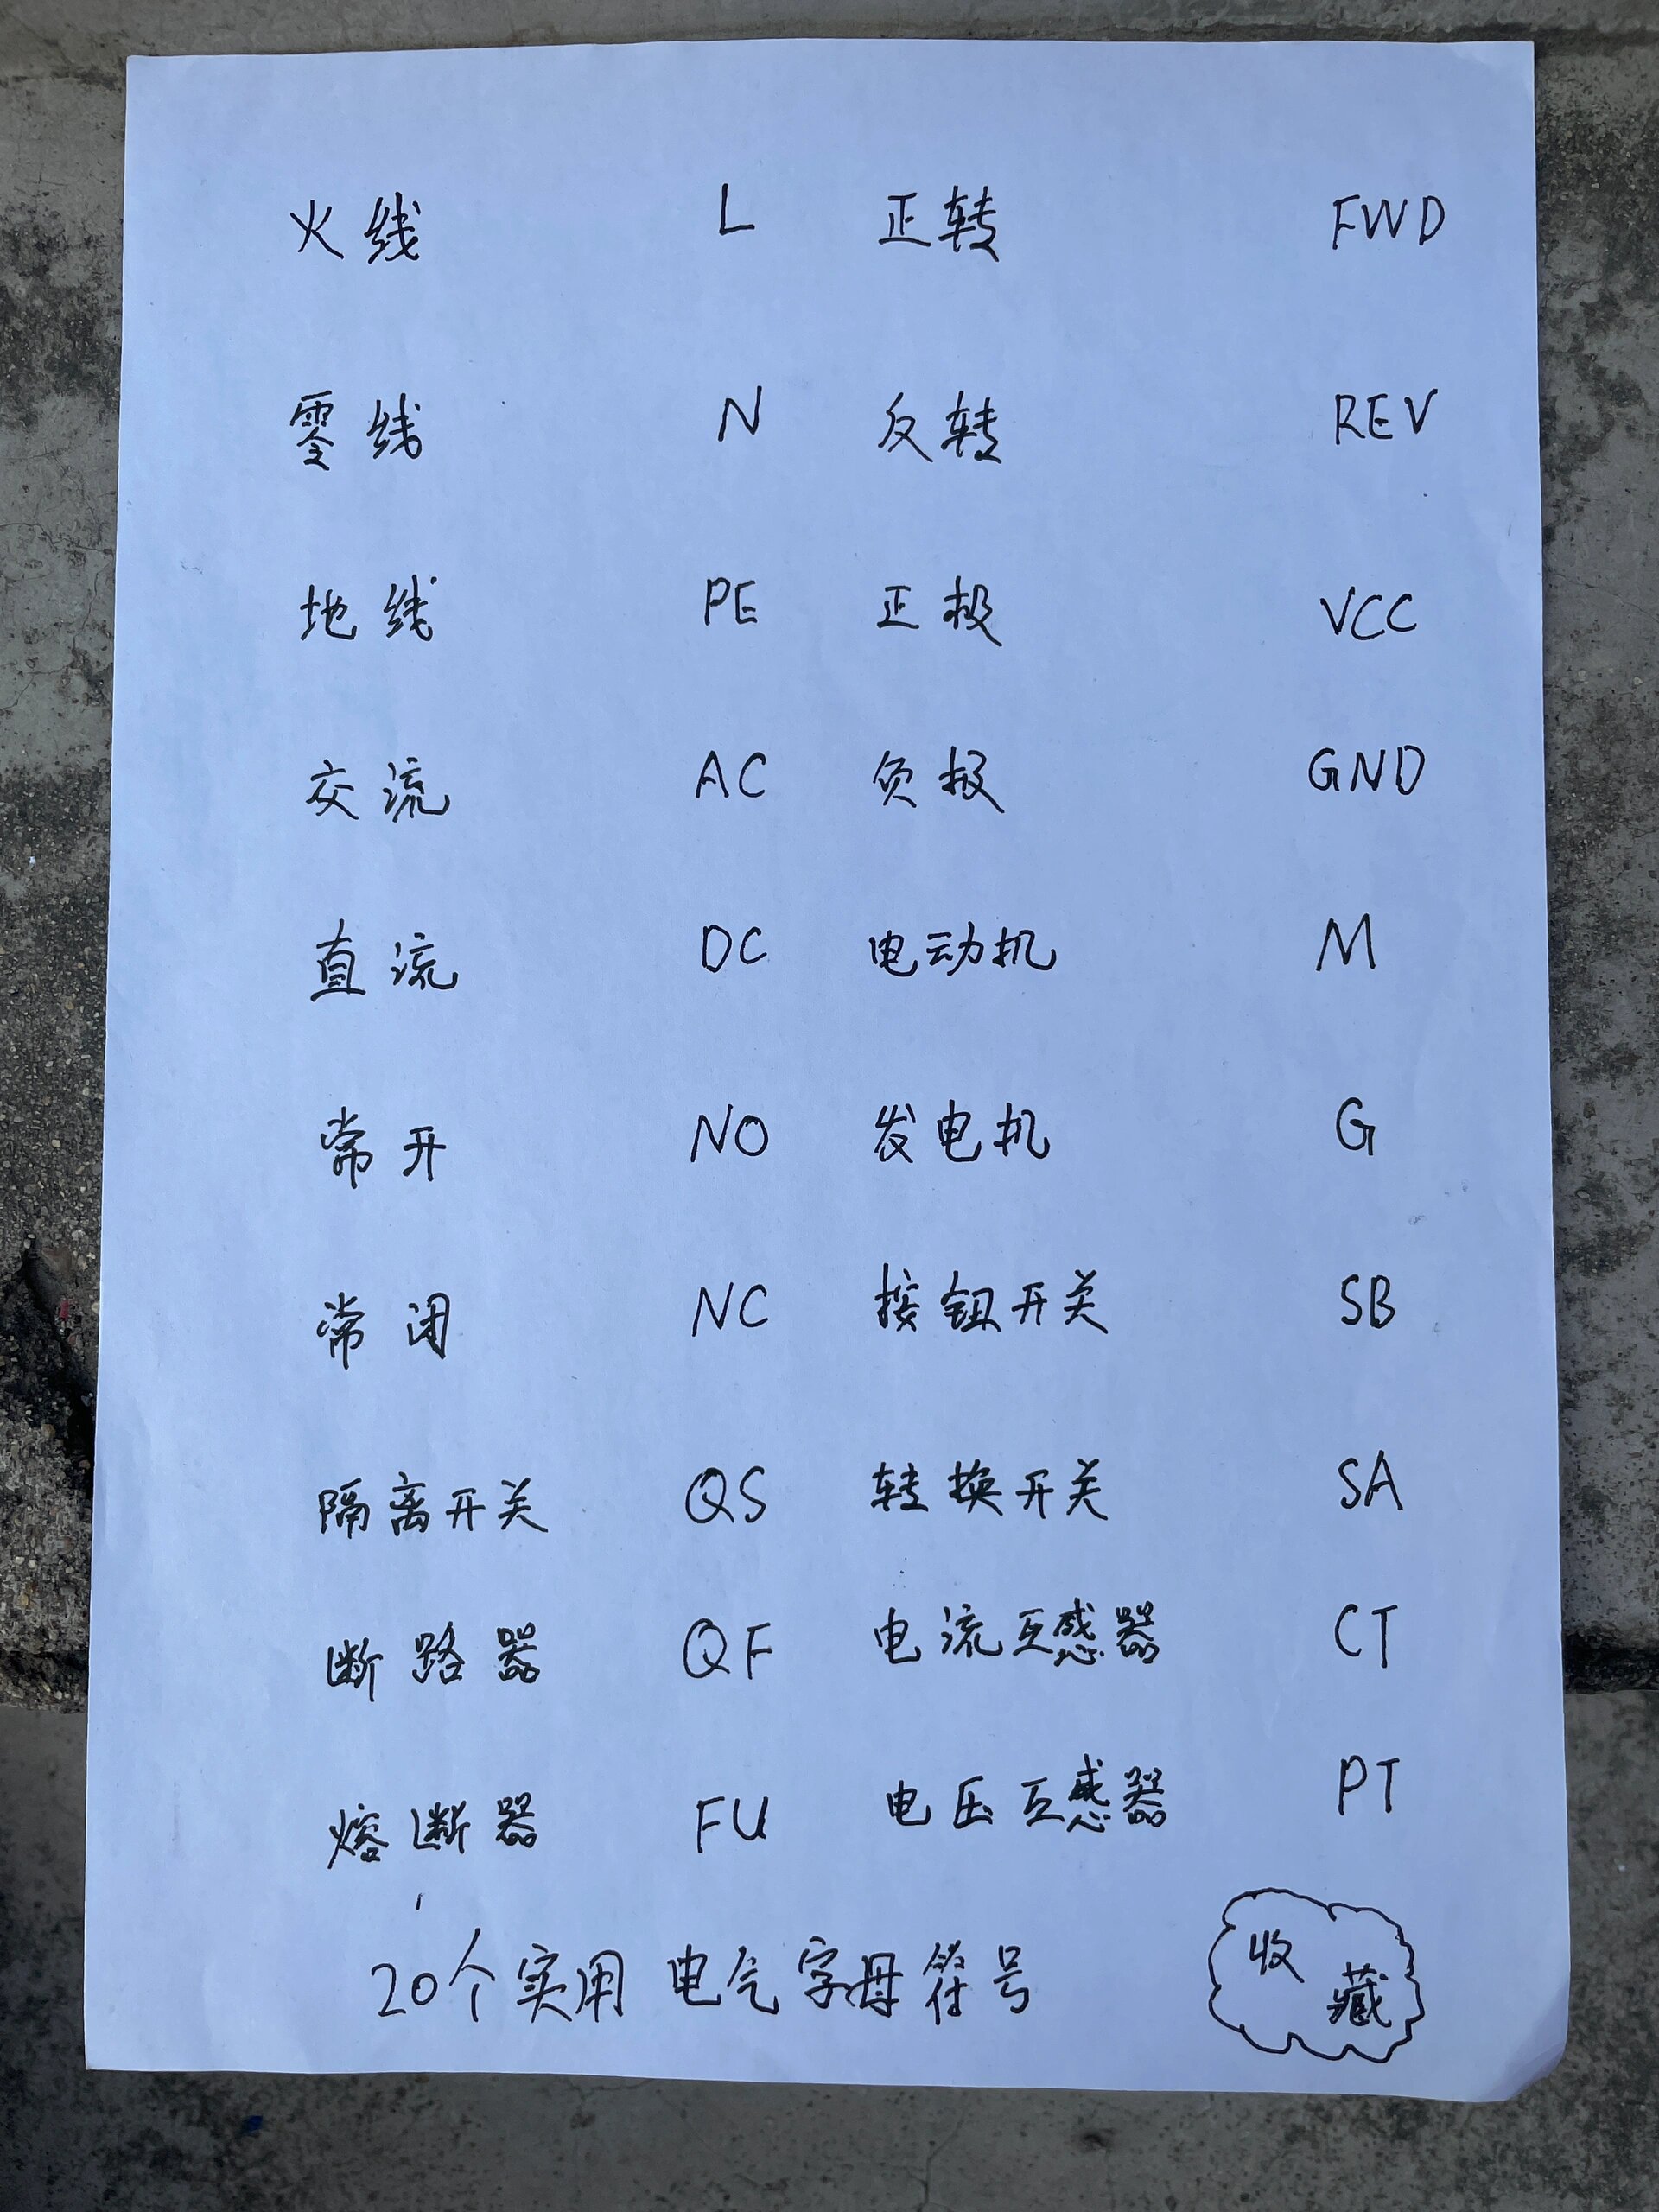 火线 L 正转 FWD
零线 N 反转 REV
地线 PE 正极 VCC
交流 AC 负极 GND
直流 DC 电动机 M
常开 NO 发电机 G
常闭 NC 按钮开关 SB
隔离开关 QS 转换开关 SA
断路器 QF 电流互感器 CT
熔断器 FU 电压互感器 PT
20个实用电气字母符号
收藏